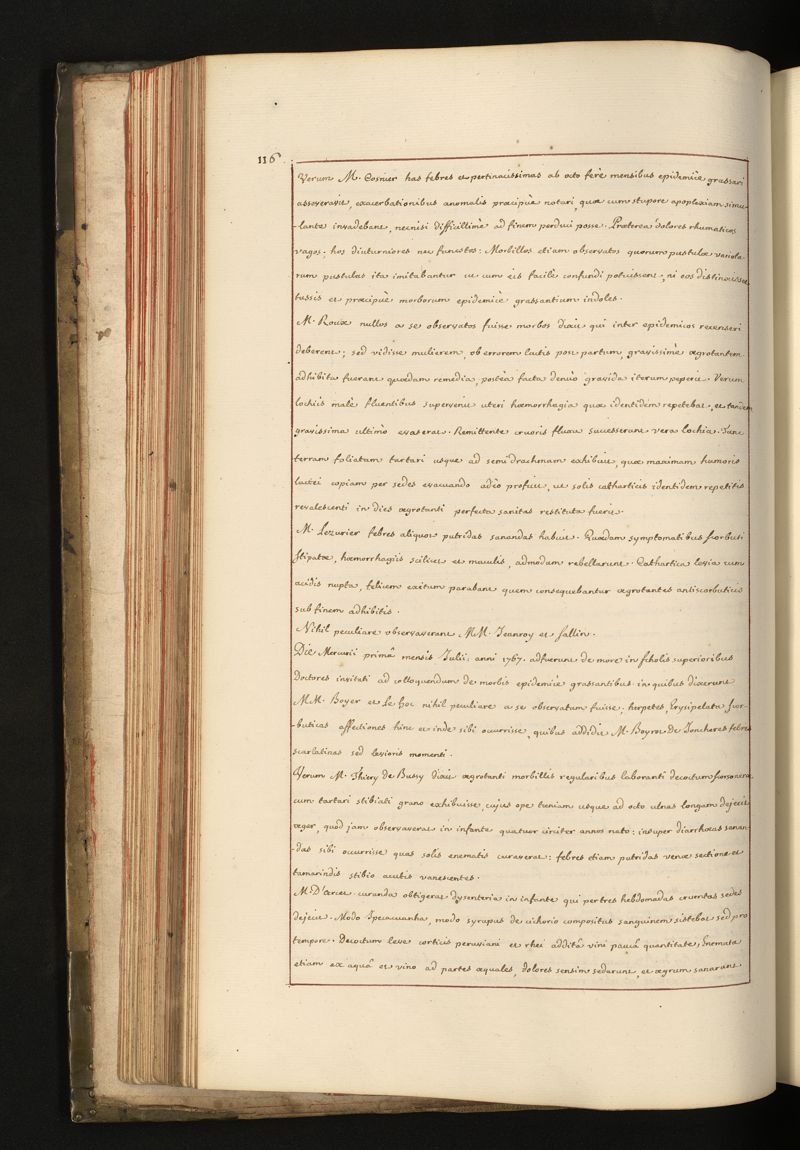 116
Verum M. Cosnier has febres et pertinacissimas ab octo ferè mensibus epidemicè grassari
asseveravit, exacerbationibus anomalis præcipuè notari, quæ cum stupore apoplexiam simu-
-lante invadebant, nec nisi difficillimè ad finem perduci posse. Præterea dolores rhumaticos
vagos; hos diuturniores nec funestos: Morbillos etiam observatos quorum pustulæ variola-
rum pustulas ita imitabantur ut cum eis facilè confundi potuissent, ni eos distinxisset
tussis et præcipuè morborum epidemicè grassantium indoles.
M. Roux nullos a se observatos fuisse morbos dixit qui inter epidemicos recenseri
deberent; sed vidisse mulierem, ob errorem lactis post partum, gravissimè ægrotantem.
adhibita fuerant quædam remedia, posteà facta denuò gravida iterum peperit. Verum
lochiis malè fluentibus supervenit uteri hæmorrhagia quæ identidem repetebat, et tandem
gravissima ultimò evaserat. Remittente cruoris fluxu successerunt vera lochia. Tunc
terram foliatam tartari usque ad semidrachmam exhibuit, quæ maximam humoris
lactei copiam per sedes evacuando adeò profuit, ut solis catharticis identidem repetitis
revalescenti in dies ægrotanti perfecta sanitas restituta fuerit.
M. Lezurier febres aliquot putridas sanandas habuit. Quædam symptomatibus scorbuti
stipatæ, hæmorrhagiis scilicet et maculis, admodum rebellarunt. Cathartica levia cum
acidis nupta, felicem exitum parabant quem consequebantur ægrotantes antiscorbuticis
sub finem adhibitis.
Nihil peculiare observaverant MM. Jeanroy et Sallin.
Die Mercurii primâ mensis Julii anni 1767. adfuerunt de more in scholis superioribus
Doctores invitati ad colloquendum de morbis epidemicè grassantibus in quibus dixerunt
MM. Boyer et Le Hoc nihil peculiare a se observatum fuisse. herpetes, Erysipelata, scor-
-buticas affectiones hinc et inde sibi occurrisse, quibus addidit M. Boyrot De Joncheres febres
scarlatinas sed levioris momenti.
Verum M. Thiery de Bussy dixit ægrotanti morbillis regularibus laboranti decoctum scorsoneræ
cum tartari stibiati grano exhibuisse, cujus ope tæniam usque ad octo ulnas longam dejecit
æger, quod jam observaverat in infante quatuor circiter annos nato: insuper diarrhœas sanan-
-das sibi occurrisse quas solis enematis curaverat: febres etiam putridas venæ sectione et
tamarindis stibio acutis vanescentes.
M. D'arcet curanda obtigerat dysenteria in infante qui per tres hebdomadas cruentas sedes
dejecit. Modo Ipecacuanha, modo syrupus de cichorio compositus sanguinem sistebat sed pro
tempore. Decoctum leve corticis peruviani et rhei additâ vini paucâ quantitate, Enemata
etiam ex aquâ et vino ad partes æquales, dolores sensim sedarunt, et ægrum sanarunt